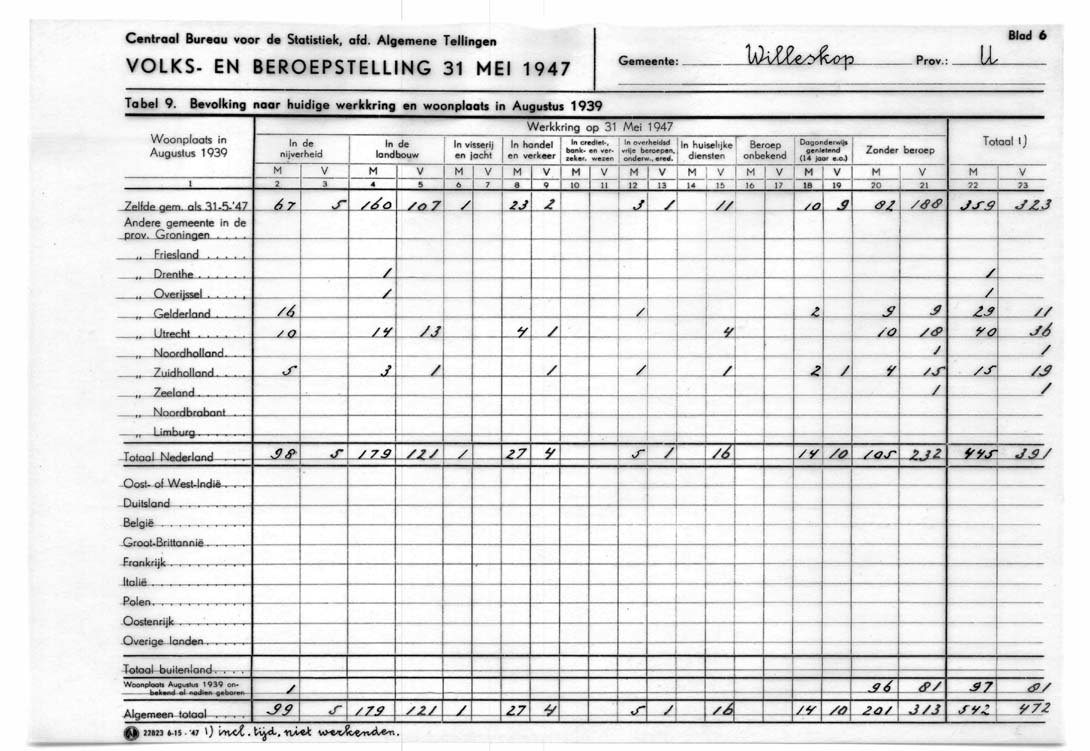 Centraal Bureau voor de Statistiek, afd. Algemene Tellingen
VOLKS- EN BEROEPSTELLING 31 MEI 1947
Gemeente: Willeskop Prov.: U
Blad 6
Tabel 9. Bevolking naar huidige werkkring en woonplaats in Augustus 1939
Woonplaats in Augustus 1939
Werkkring op 31 Mei 1947
In de nijverheid
In de landbouw
In visserij en jacht
In handel en verkeer
In crediet-, bank- en verzeker. wezen
In overheidsd vrije beroepen, onderw., ered.
In huiselijke diensten
Beroep onbekend
Dagonderwijs genietend (14 jaar e.o.)
Zonder beroep
Totaal 1)
M V M V M V M V M V M V M V M V M V M V M V
1 2 3 4 5 6 7 8 9 10 11 12 13 14 15 16 17 18 19 20 21 22 23
Zelfde gem. als 31-5-'47 67 5 160 107 1 23 2 3 1 11 10 9 82 188 359 323
Andere gemeente in de
prov. Groningen . . . .
„ Friesland . . . . .
„ Drenthe . . . . . 1 1
„ Overijssel . . . . 1 1
„ Gelderland . . . . 16 1 2 9 9 29 11
„ Utrecht . . . . . 10 14 13 4 1 4 10 18 40 36
„ Noordholland. . . 1 1
„ Zuidholland. . . . 5 3 1 1 1 1 2 1 4 15 15 19
„ Zeeland. . . . . 1 1
„ Noordbrabant . .
„ Limburg. . . . . .
Totaal Nederland . . . . 98 5 179 121 1 27 4 5 1 16 14 10 105 232 445 391
Oost- of West-Indië . . .
Duitsland . . . . . . . .
België . . . . . . . . .
Groot-Brittannië. . . . .
Frankrijk . . . . . . . .
Italië . . . . . . . . . .
Polen. . . . . . . . . .
Oostenrijk . . . . . . .
Overige landen. . . . .
Totaal buitenland. . . .
Woonplaats Augustus 1939 on-
bekend of nadien geboren 1 96 81 97 81
Algemeen totaal . . . . 99 5 179 121 1 27 4 5 1 16 14 10 201 313 542 472
22823 6-15 - '47 1) incl. tijd. niet werkenden.